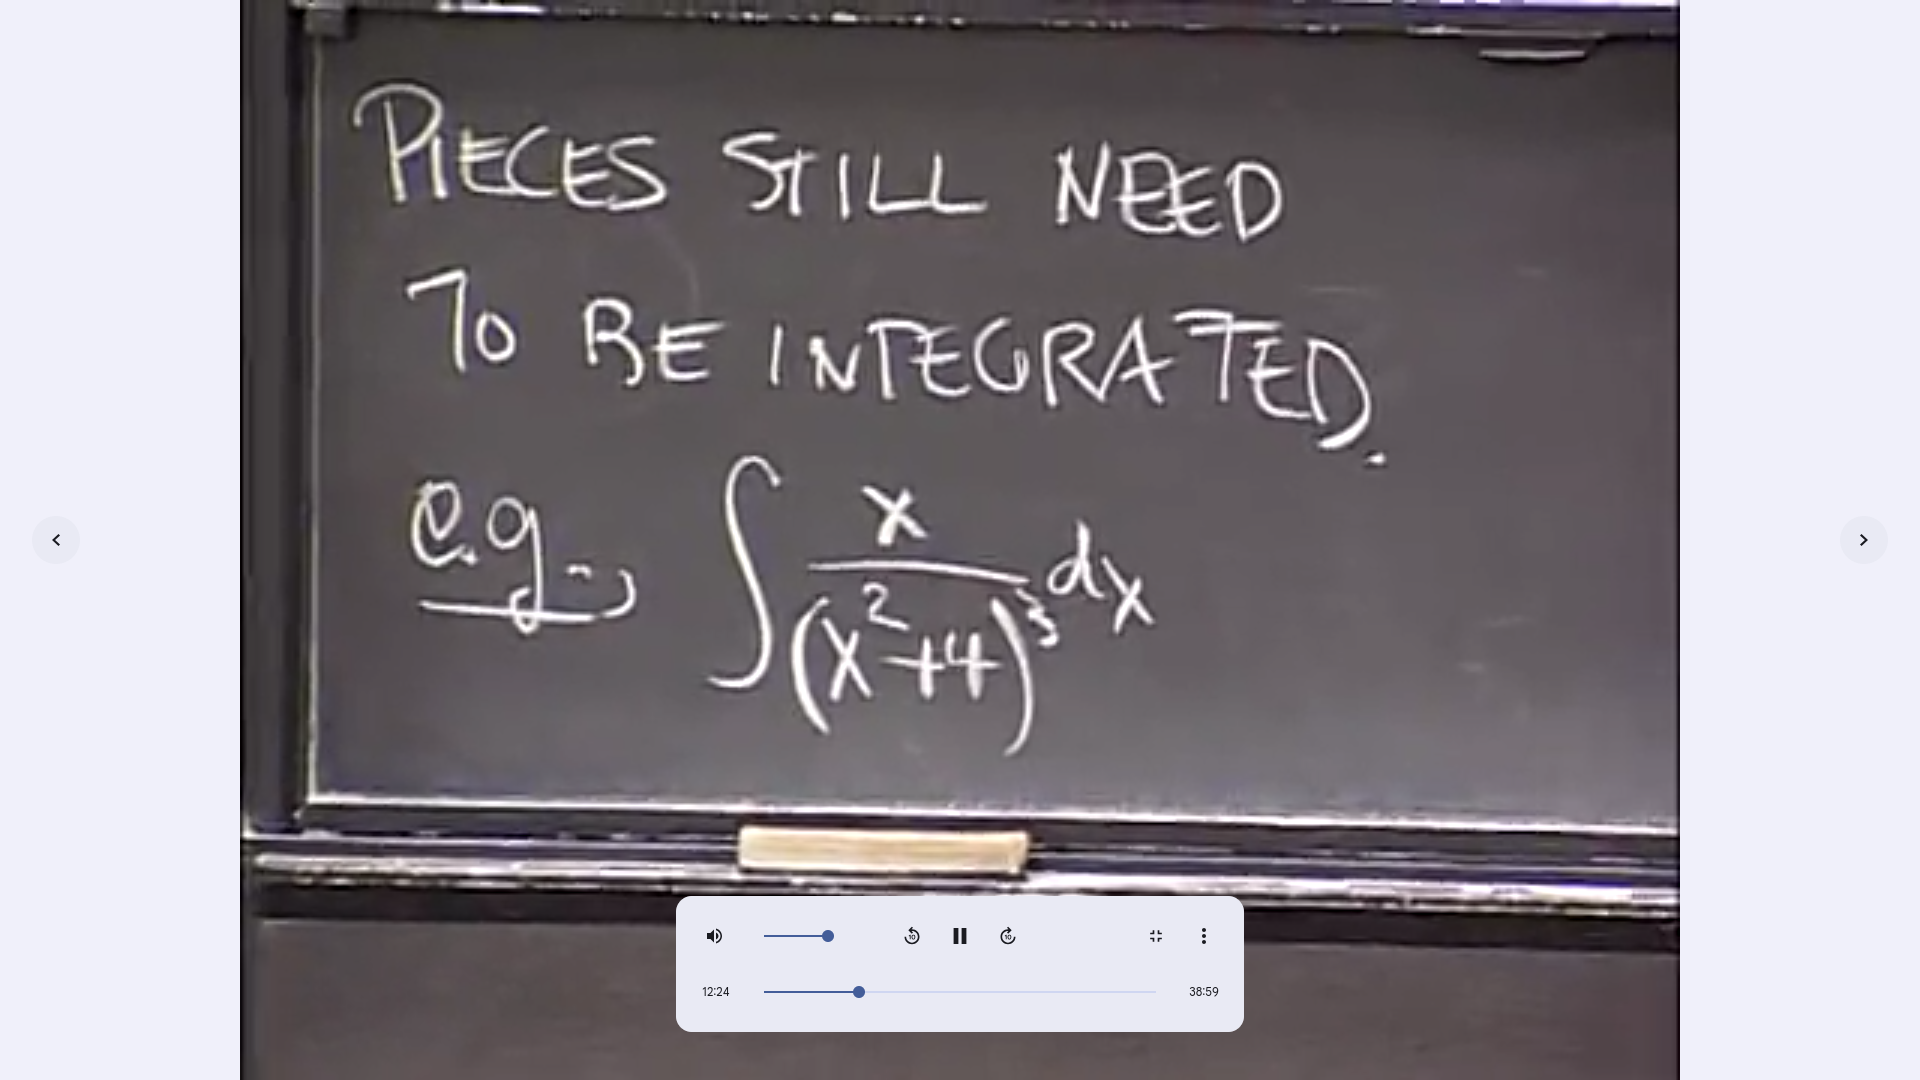 PIECES STILL NEED
TO BE INTEGRATED.
e.g., ∫ x/(x²+4)³ dx
10 10
12:24 38:59